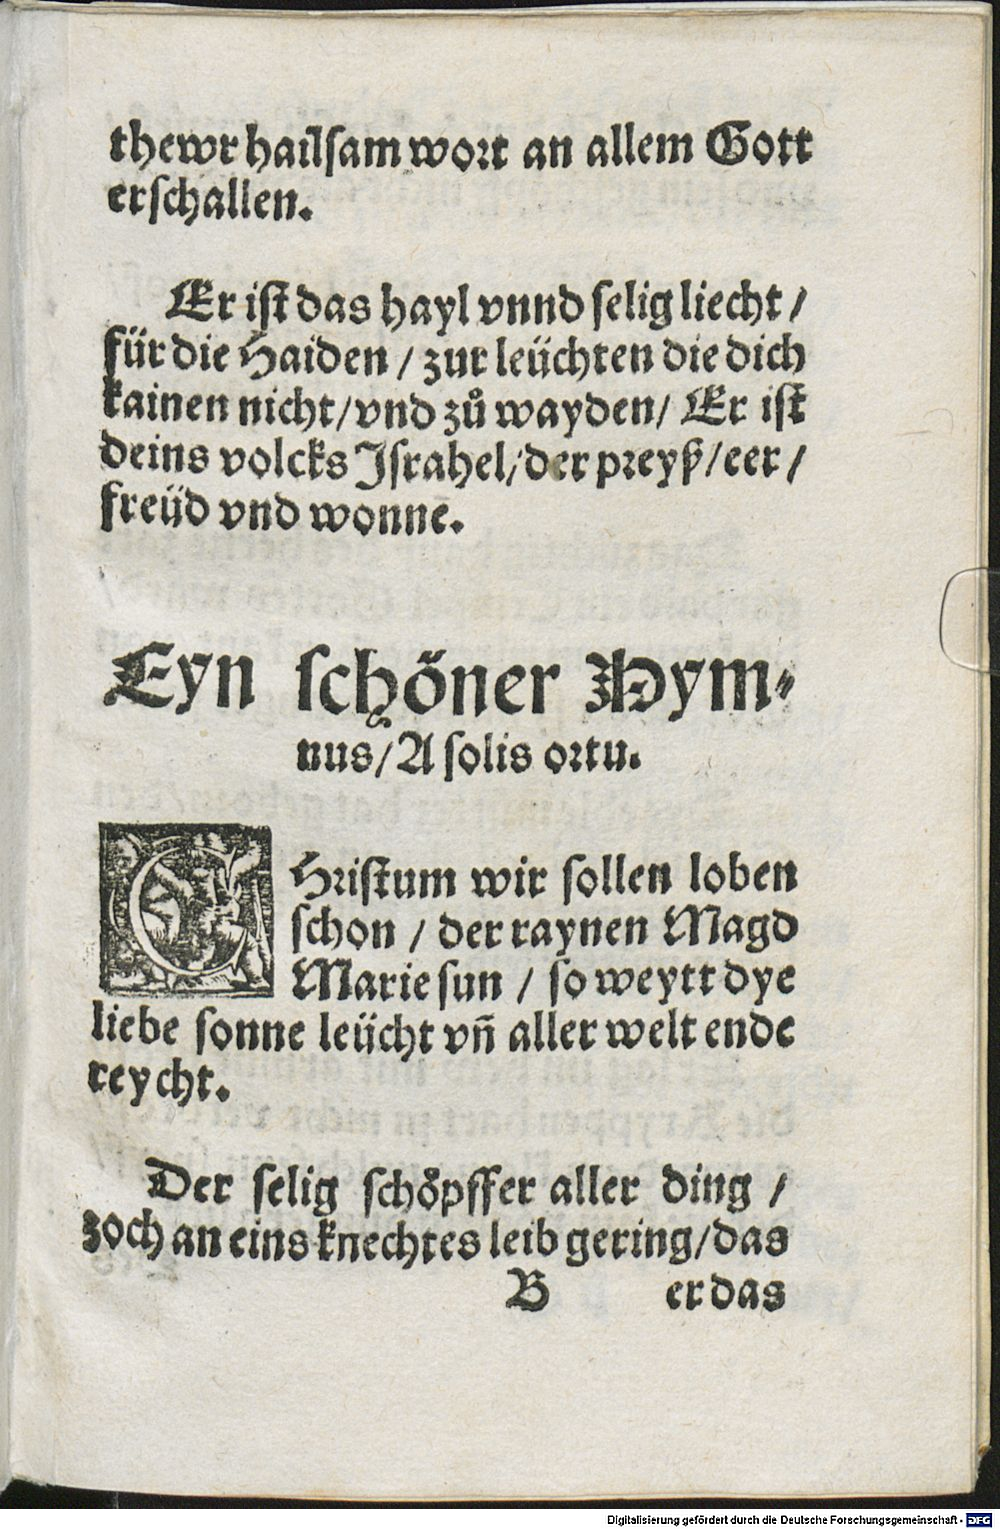 thewr hailſam wort an allem Gott
erſchallen.
Er iſt das hayl vnnd ſelig liecht /
für die Haiden / zur leüchten die dich
kainen nicht / vnd zů wayden / Er iſt
deins volcks Jſrahel / der preyß / eer /
freüd vnd wonne.
Eyn ſchöner Hym⸗
nus / A ſolis ortu.
CHriſtum wir ſollen loben
ſchon / der raynen Magd
Marie ſun / ſo weytt dye
liebe ſonne leücht vñ aller welt ende
reycht.
Der ſelig ſchoͤpffer aller ding /
zoch an eins knechtes leib gering / das
B er das
Digitalisierung gefördert durch die Deutsche Forschungsgemeinschaft - DFG